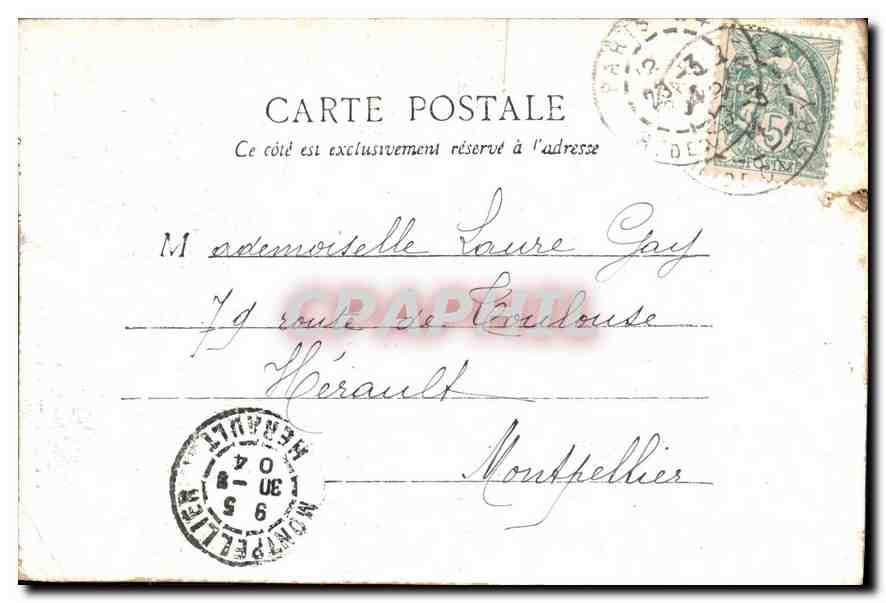 CARTE POSTALE
Ce côté est exclusivement réservé à l'adresse
Mademoiselle Laure Gay
79 route de Toulouse
Hérault
Montpellier
CPAPHIL
PARIS
5
POSTES
MONTPELLIER
HERAULT
9 5
30 - 8
04